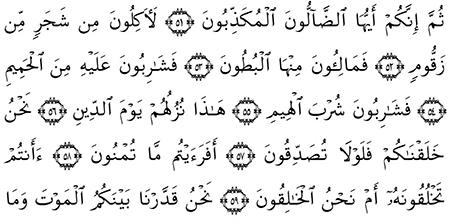 ثُمَّ إِنَّكُمْ أَيُّهَا ٱلضَّآلُّونَ ٱلْمُكَذِّبُونَ ﴿٥١﴾ لَأَكِلُونَ مِن شَجَرٍ مِّن
زَقُّومٍ ﴿٥٢﴾ فَمَالِئُونَ مِنْهَا ٱلْبُطُونَ ﴿٥٣﴾ فَشَارِبُونَ عَلَيْهِ مِنَ ٱلْحَمِيمِ
﴿٥٤﴾ فَشَارِبُونَ شُرْبَ ٱلْهِيمِ ﴿٥٥﴾ هَٰذَا نُزُلُهُمْ يَوْمَ ٱلدِّينِ ﴿٥٦﴾ نَحْنُ
خَلَقْنَاكُمْ فَلَوْلَا تُصَدِّقُونَ ﴿٥٧﴾ أَفَرَءَيْتُم مَّا تُمْنُونَ ﴿٥٨﴾ ءَأَنتُمْ
تَخْلُقُونَهُۥٓ أَمْ نَحْنُ ٱلْخَالِقُونَ ﴿٥٩﴾ نَحْنُ قَدَّرْنَا بَيْنَكُمُ ٱلْمَوْتَ وَمَا